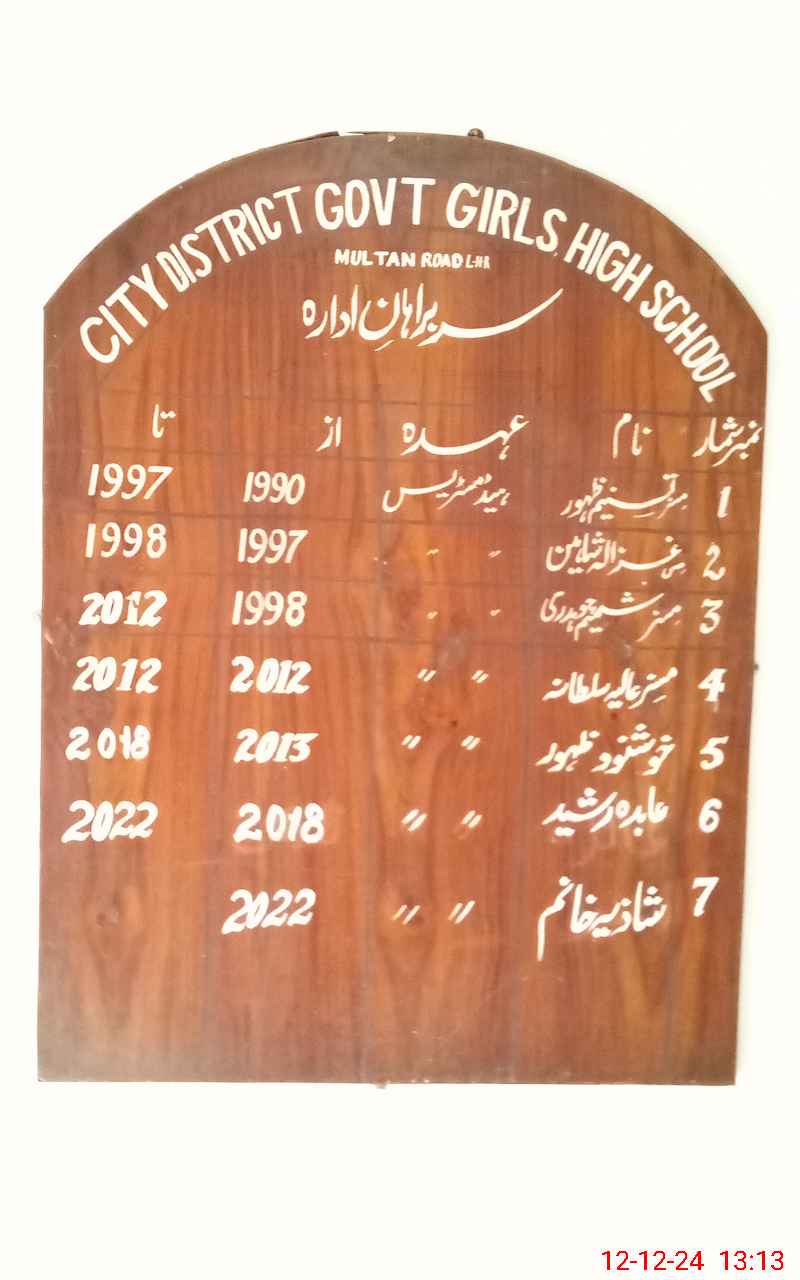 CITY DISTRICT GOVT GIRLS HIGH SCHOOL
MULTAN ROAD LHR
سربراہانِ ادارہ
نمبر شمار نام عہدہ از تا
1 مسز تسنیم ظہور ہیڈ مسٹریس 1990 1997
2 مس غزالہ شاہین " " 1997 1998
3 مسز شمیم چوہدری " " 1998 2012
4 مسز عالیہ سلطانہ " " 2012 2012
5 خوشنود ظہور " " 2013 2018
6 عابدہ رشید " " 2018 2022
7 شاذیہ خانم " " 2022
12-12-24 13:13